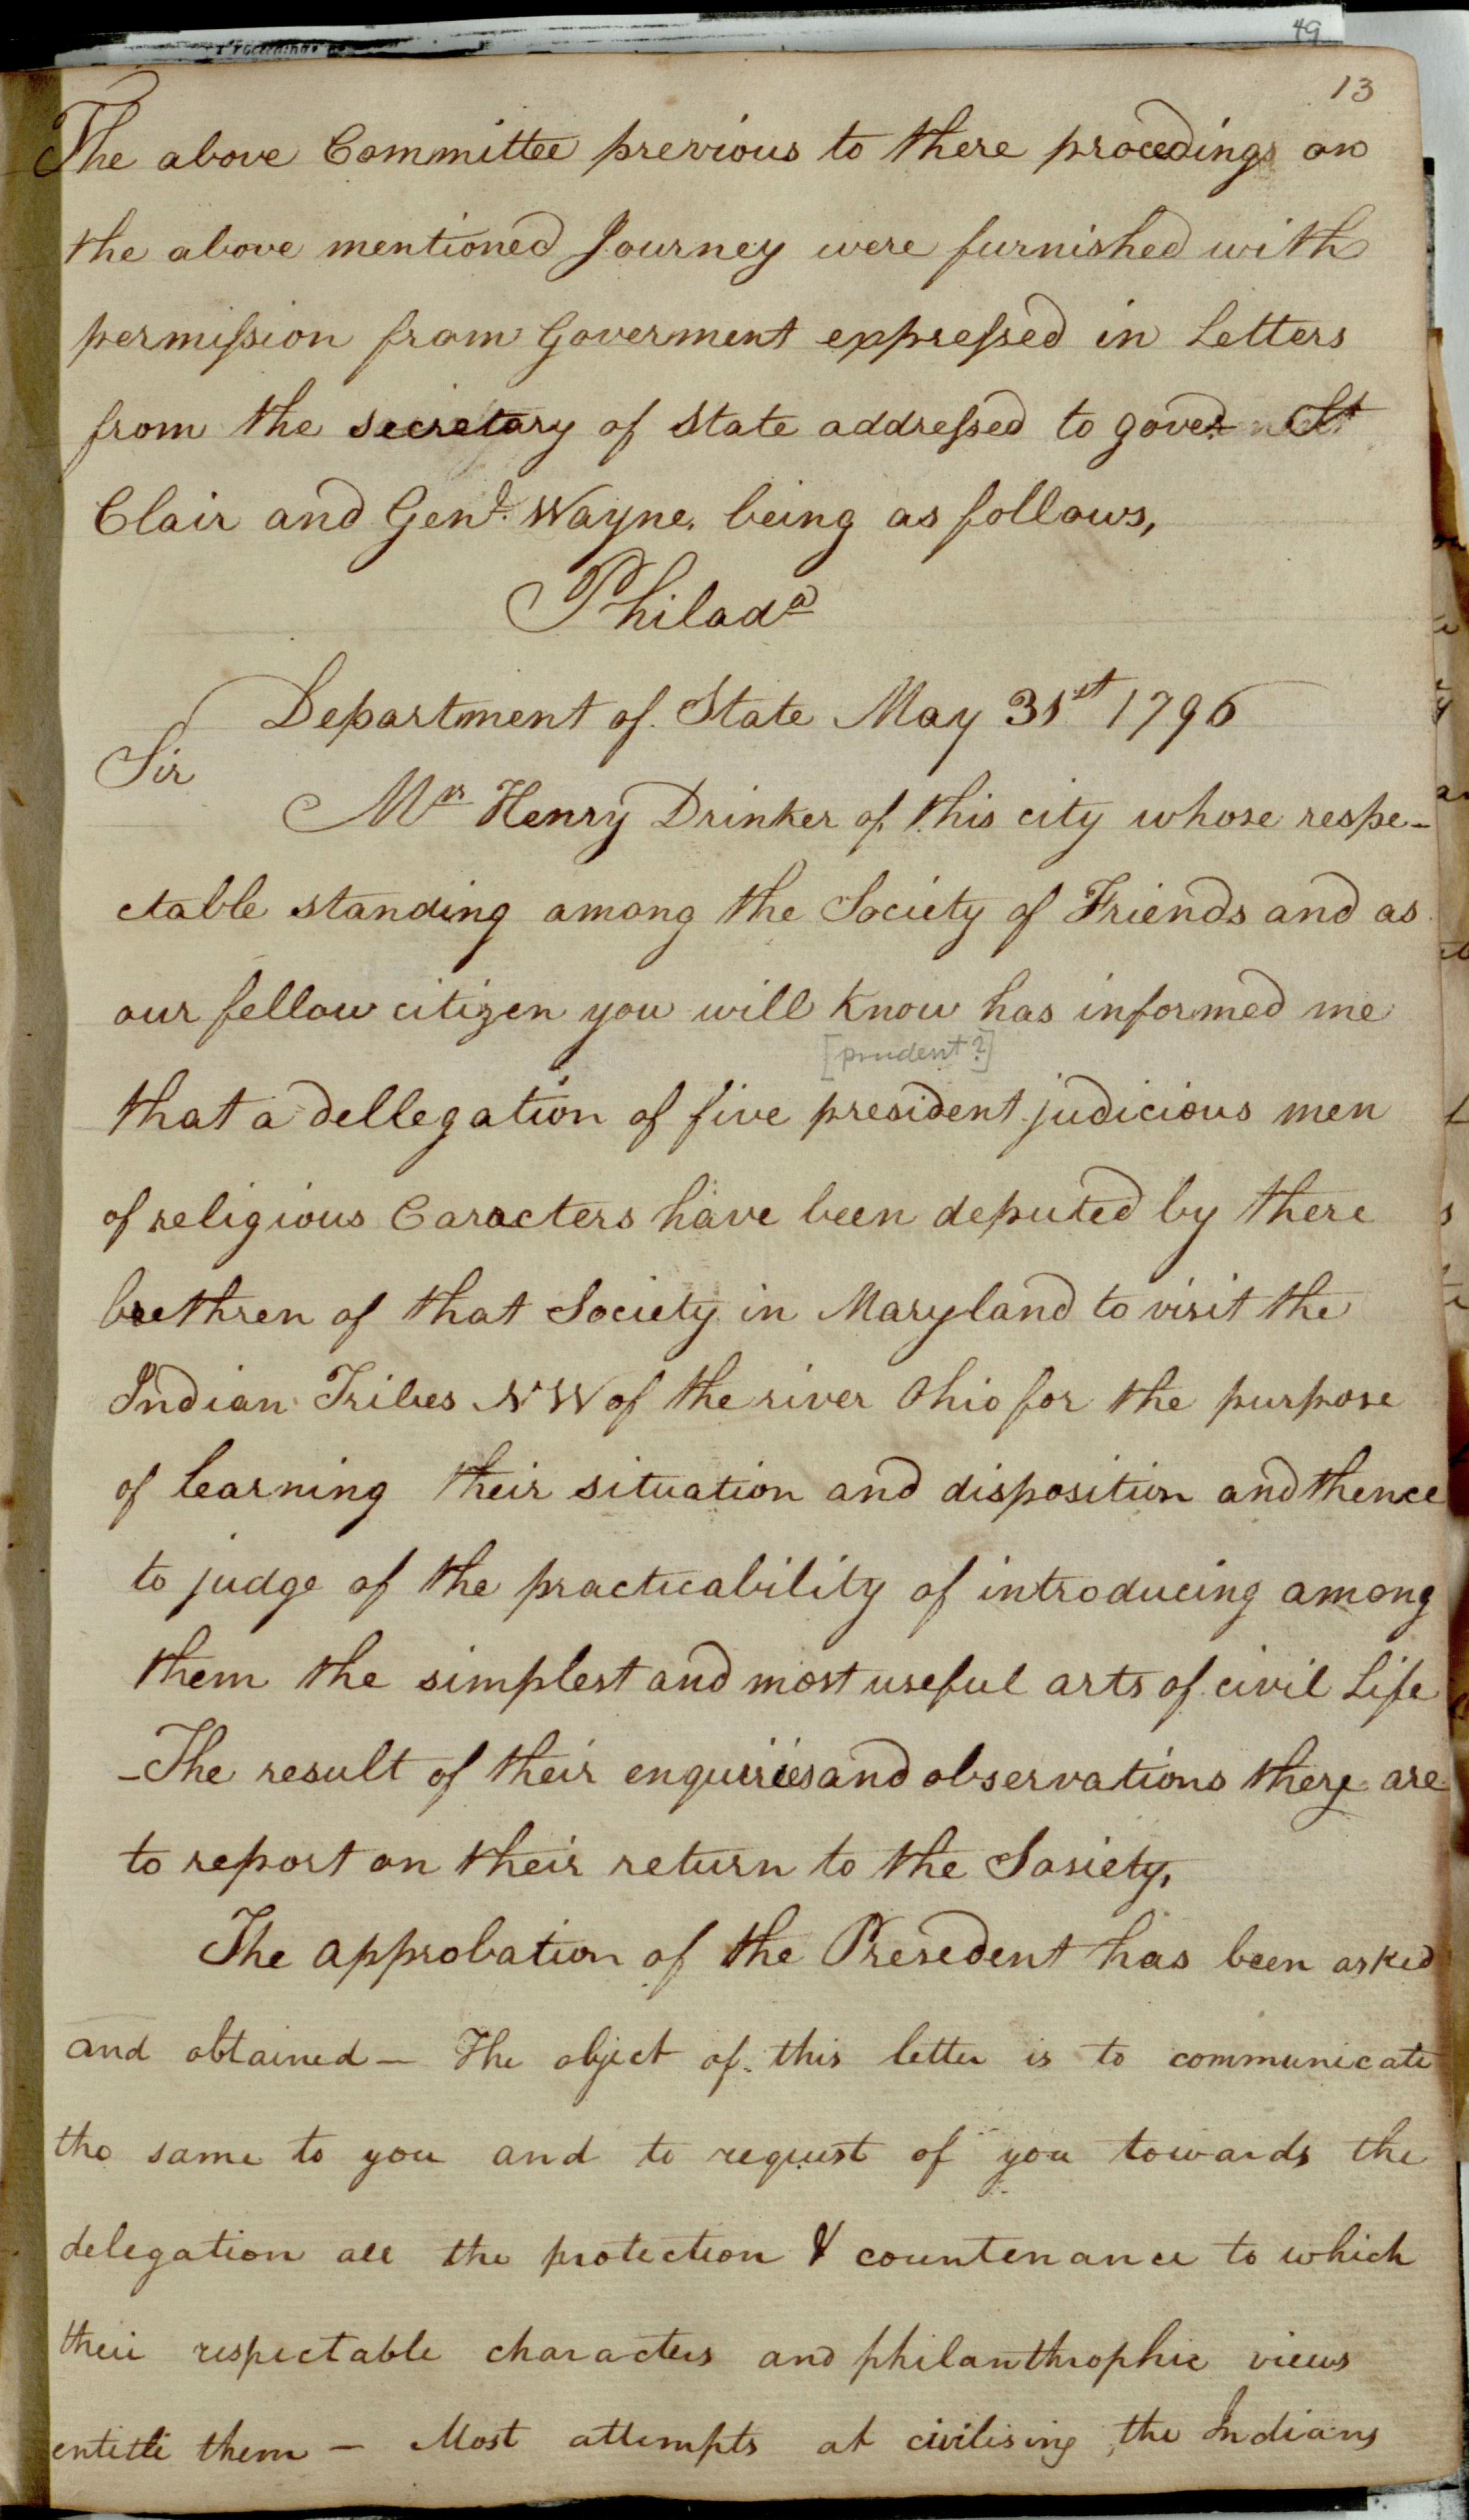 49
13
The above Committee previous to there procedings on
the above mentioned Journey were furnished with
permission from Goverment expressed in Letters
from the secretary of State addressed to gover St
Clair and Genl. Wayne, being as follows,
Philada
Department of State May 31st 1796
Sir
Mr Henry Drinker of this city whose respe-
ctable standing among the Society of Friends and as
our fellow citizen you will know has informed me
[prudent?]
that a dellegation of five president judicious men
of religious Caracters have been deputed by there
brethren of that Society in Maryland to visit the
Indian Tribes NW of the river Ohio for the purpose
of learning their situation and disposition and thence
to judge of the practicability of introducing among
them the simplest and most useful arts of civil Life
-The result of their enquiries and observations they are
to report on their return to the Sosiety,
The approbation of the Presedent has been asked
and obtained - The object of this letter is to communicate
the same to you and to request of you towards the
delegation all the protection & countenance to which
their respectable characters and philanthrophic views
entitle them - Most attempts at civilising the Indians